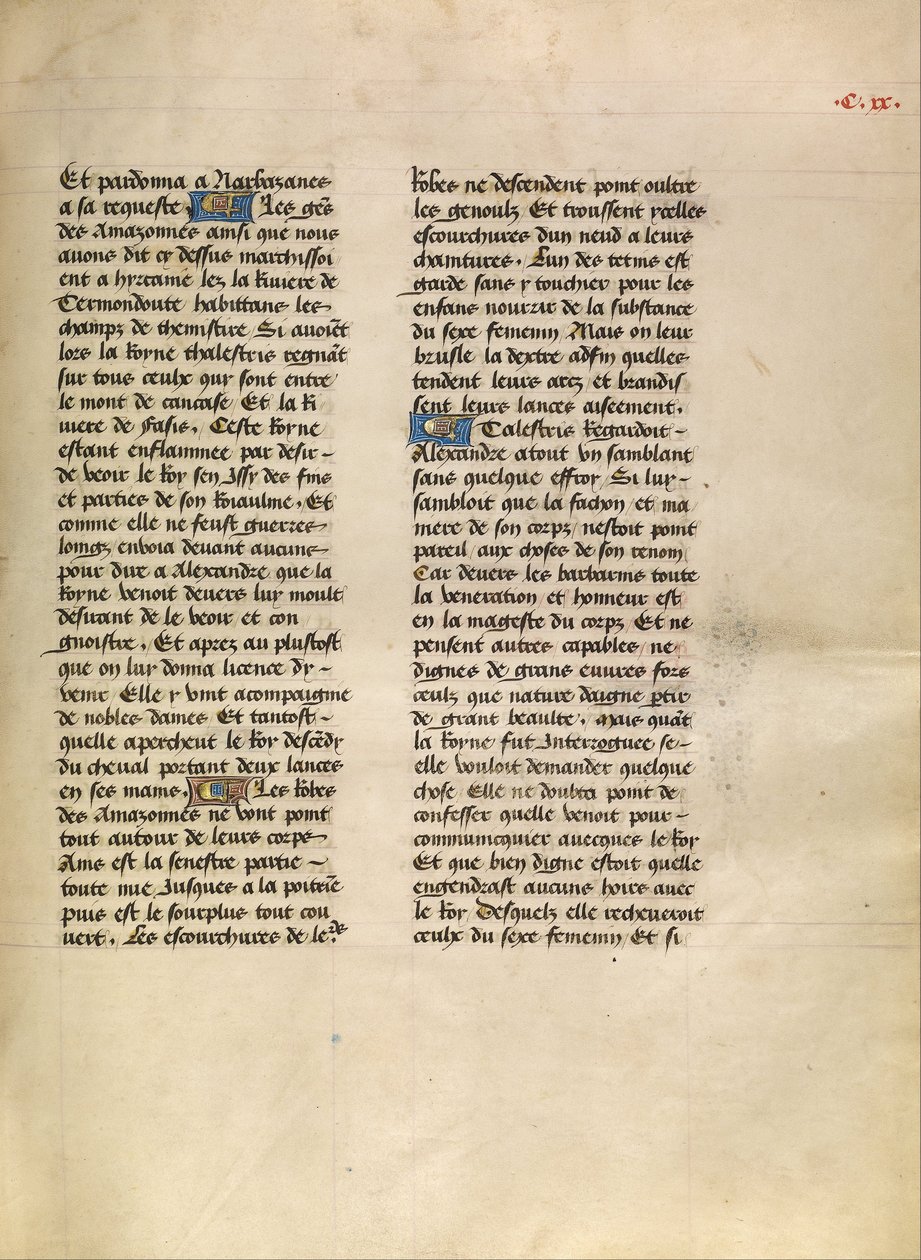 .C. xx.
Et pardonna a Narbazanes
a sa requeste. Les gẽs
des Amazonnes ainsi que nous
auons dit cy dessus marchissoi
ent a hyrcaine lez la Riuiere de
Termondoute habittans les
champz de themistire Si auoiẽt
lors la Royne thalestris regnãt
sur tous ceulx qui sont entre
le mont de caucase Et la Ri
uiere de fasis. Ceste Royne
estant enflammee par desir -
de veoir le Roy sen Issy des fins
et parties de son Roiaulme. Et
comme elle ne feust guerres
loingz enuoia deuant aucuns
pour dire a Alexandre que la
Royne venoit deuers luy moult
desirant de le veoir et con
gnoistre. Et aprez au plustost
que on luy donna licence dy -
venir Elle y vint acompaignie
de nobles dames Et tantost -
quelle apercheut le Roy descẽdy
du cheual portant deux lances
en ses mains. Les Robes
des Amazonnes ne vont point
tout autour de leurs corps
Ains est la senestre partie -
toute nue Jusques a la poitrĩe
puis est le sourplus tout cou
uert. Les escourchures de le.rs
Robes ne descendent point oultre
les genoulz Et troussent ycelles
escourchures dun neud a leurs
chaintures. Lun des tetins est
garde sans y touchier pour les
enfans nourrir de la substance
du sexe feminin Mais on leur
brusle la dextre adfin quelles
tendent leurs arcz et brandis
sent leurs lances aiseement.
Talestris Regardoit -
Alexandre atout vn samblant
sans quelque effroy Si luy -
sambloit que la fachon et ma
niere de son corpz nestoit point
pareil aux choses de son renom
Car deuers les barbarins toute
la veneration et honneur est
en la mageste du corpz Et ne
pensent autres capables ne
dignes de grans euures fors
ceulz que nature daigne ꝑtir
de grant beaulte. Mais quãt
la Royne fut Interroguee se -
elle vouloit demander quelque
chose Elle ne doubta point de
confesser quelle venoit pour -
communicquier auecques le Roy
Et que bien digne estoit quelle
engendrast aucuns hoirs auec
le Roy Desquelz elle recheueroit
ceulx du sexe feminin Et si